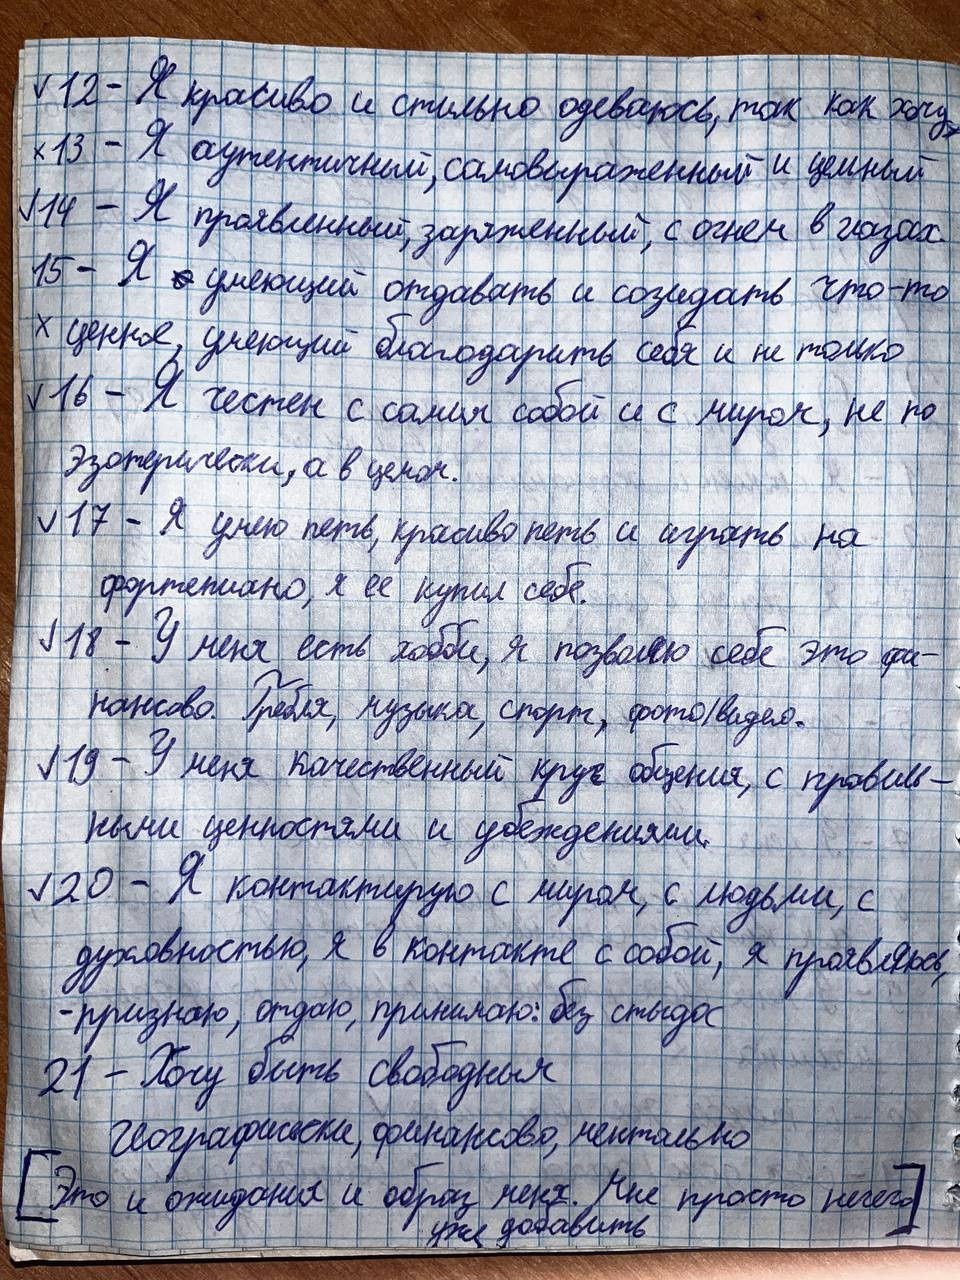 √12 - Я красиво и стильно одеваюсь, так как хочу
×13 - Я аутентичный, самовыраженный и ценный
√14 - Я проявленный, заряженный, с огнем в глазах.
15 - Я умеющий отдавать и созидать что-то
× ценное, умеющий благодарить себя и не только
√16 - Я честен с самим собой и с миром, не по
эзотерически, а в целом.
√17 - Я умею петь, красиво петь и играть на
фортепиано, я ее купил себе.
√18 - У меня есть хобби, я позволяю себе это фи-
нансово. Гребля, музыка, спорт, фото/видео.
√19 - У меня качественный круг общения, с правиль-
ными ценностями и убеждениями.
√20 - Я контактирую с миром, с людьми, с
духовностью, я в контакте с собой, я проявляюсь,
-признаю, отдаю, принимаю: без стыда
21 - Хочу быть свободным
географически, финансово, ментально
[Это и ожидания и образ меня. Мне просто нечего]
уже добавить